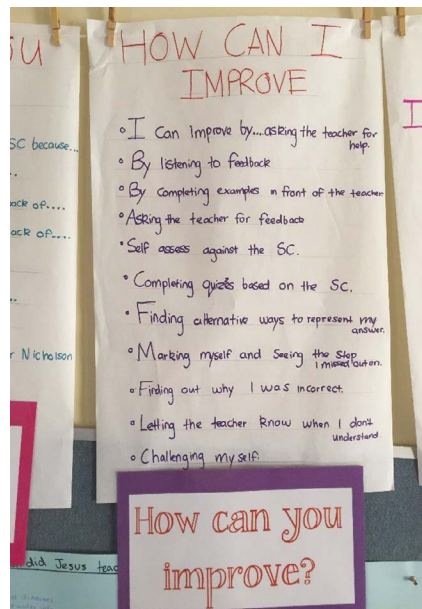 HOW CAN I
IMPROVE
• I Can Improve by....asking the teacher for
help.
• By listening to feedback
• By completing examples in front of the teacher
• Asking the teacher for feedback
• Self assess against the SC.
• Completing quizes based on the SC.
• Finding alternative ways to represent my
answer.
• Marking myself and Seeing the step
I missed out on.
• Finding out why I was incorrect.
• Letting the teacher know when I don't
understand
• Challenging myself.
How can you
improve?
SC because...
ack of....
ack of....
r Nicholson
did Jesus teac
I